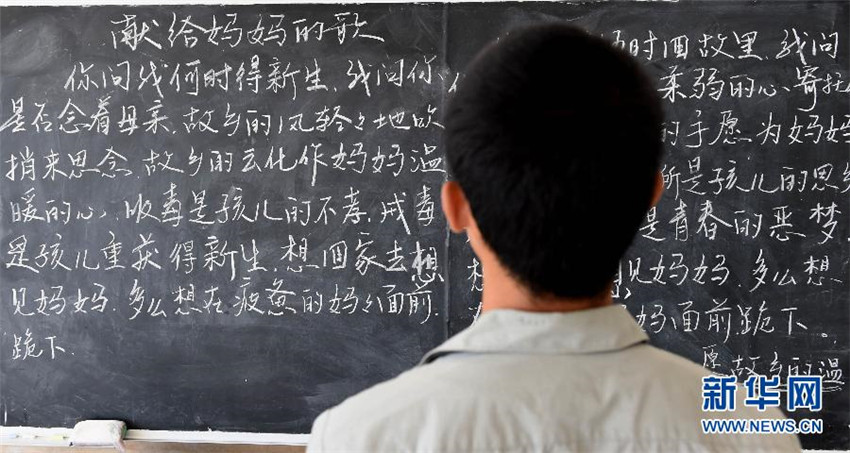 献给妈妈的歌
你问我何时得新生,我问你
是否念着母亲.故乡的风轻々地吹
捎来思念.故乡的云化作妈妈温
暖的心,吸毒是孩儿的不孝.戒毒
是孩儿重获得新生.想回家去想
见妈妈.多么想在疲惫的妈々面前.
跪下.
时回故里.我问
柔弱的心.寄托
的手愿.为妈妈
所是孩儿的思乡
是青春的恶梦.
见妈妈.多么想
妈面前.跪下。
愿故乡的温
新华网
WWW.NEWS.CN